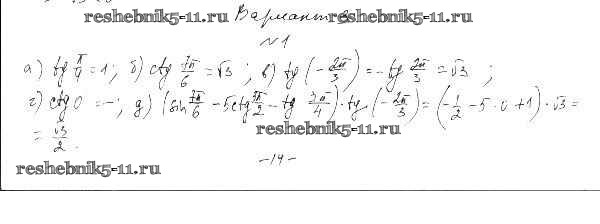 reshebnik5-11.ru Вариант reshebnik5-11.ru
№1
а) tg π/4 = 1; б) ctg 7π/6 = √3; в) tg(-2π/3) = -tg 2π/3 = √3;
г) ctg 0 = —; д) (sin 7π/6 - 5ctg 3π/2 - tg 3π/4) · tg(-2π/3) = (-1/2 - 5 · 0 + 1) · √3 =
reshebnik5-11.ru
= √3/2.
reshebnik5-11.ru
-14-